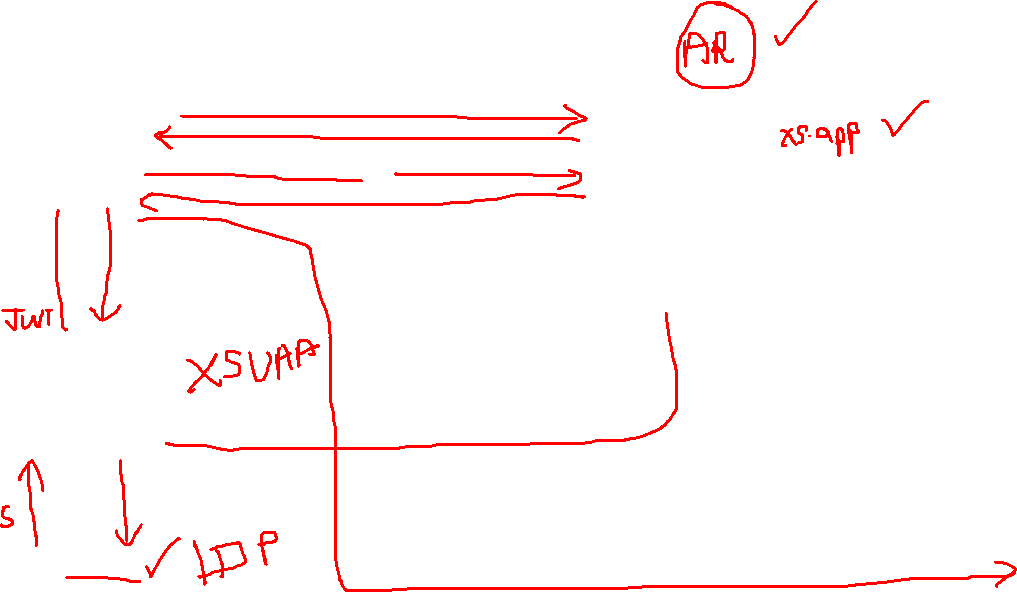 AR
xs-app
JWT
XSUAA
S
IDP